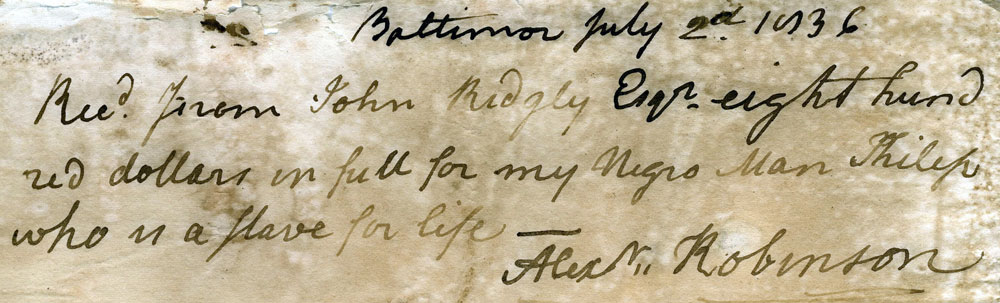 Baltimor July 2d. 1836
Recd. from John Ridgly Esqr. eight hund
red dollars in full for my Negro Man Philip
who is a slave for life —
Alexr. Robinson